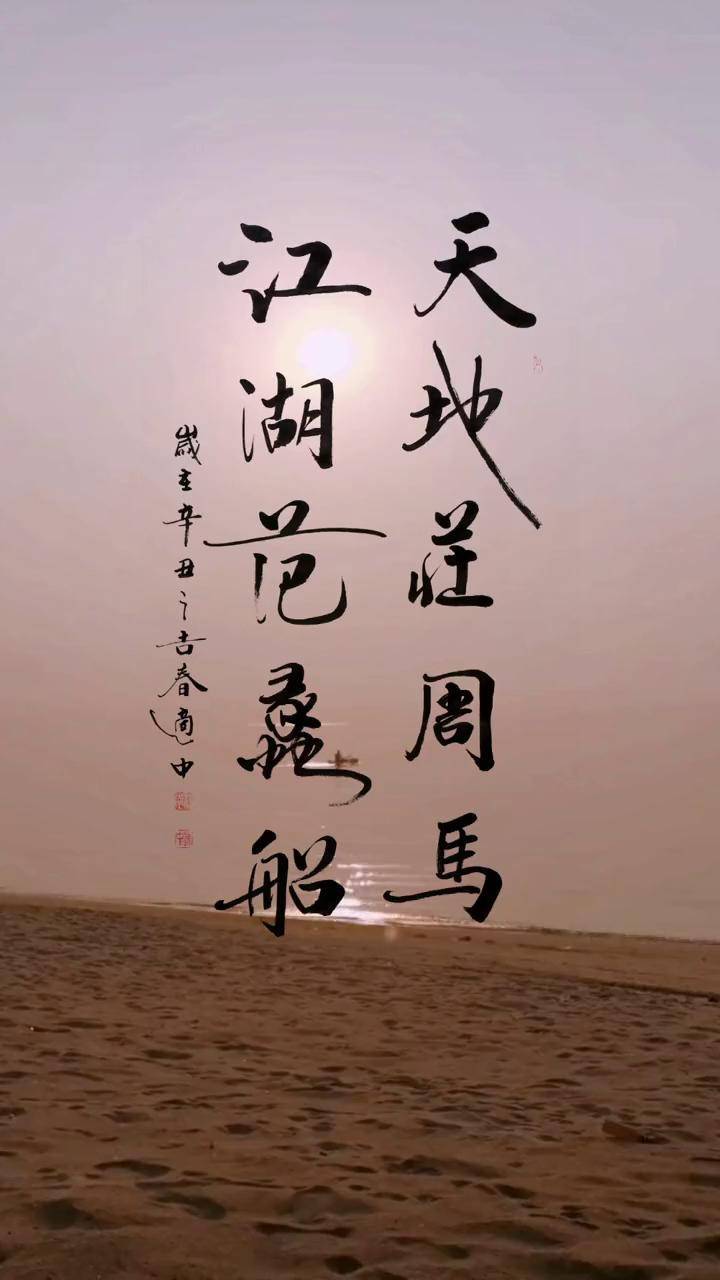 天地莊周馬
江湖范蠡船
歲在辛丑之吉春適中